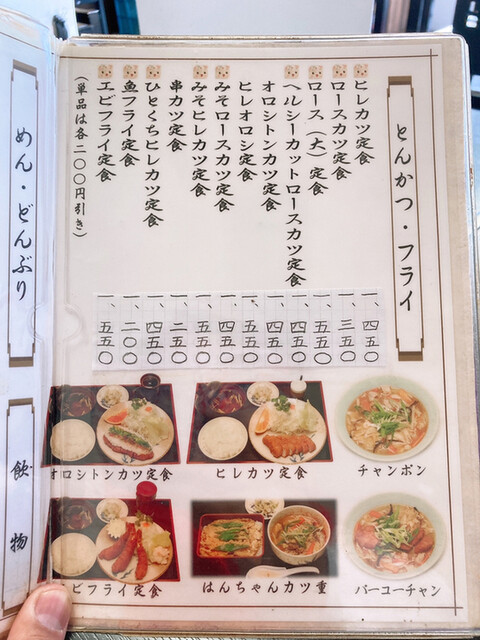 とんかつ・フライ
ヒレカツ定食 一、四五〇
ロースカツ定食 一、三五〇
ロース（大）定食 一、五五〇
ヘルシーカットロースカツ定食 一、四五〇
オロシトンカツ定食 一、四五〇
ヒレオロシ定食 一、五五〇
みそロースカツ定食 一、四五〇
みそヒレカツ定食 一、五五〇
串カツ定食 一、二五〇
ひとくちヒレカツ定食 一、四五〇
魚フライ定食 一、二〇〇
エビフライ定食 一、五五〇
（単品は各二〇〇円引き）
オロシトンカツ定食
ヒレカツ定食
チャンポン
ビフライ定食
はんちゃんカツ重
パーコーチャン
めん・どんぶり
飲物